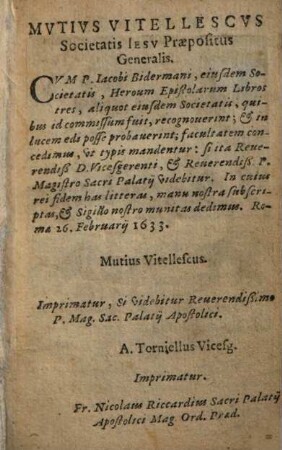 MVTIVS VITELLESCVS
Societatis IESV Præpositus
Generalis.
CVM P. Iacobi Bidermani, eiusdem So-
cietatis, Heroum Epistolarum Libros
tres, aliquot eiusdem Societatis, qui-
bus id commissum fuit, recognouerint; & in
lucem edi posse probauerint; facultatem con-
cedimus, vt typis mandentur: si ita Reue-
rendiß D. Vicesgerenti, & Reuerendiß. P.
Magistro Sacri Palatij videbitur. In cuius
rei fidem has litteras, manu nostra subscri-
ptas, & Sigillo nostro munitas dedimus. Ro-
mæ 26. Februarij 1633.
Mutius Vitellescus.
Imprimatur, Si videbitur Reuerendiss mo
P. Mag. Sac. Palatij Apostolici.
A. Torniellus Vicesg.
Imprimatur.
Fr. Nicolaus Riccardius Sacri Palatij
Apostolici Mag Ord. Præd.